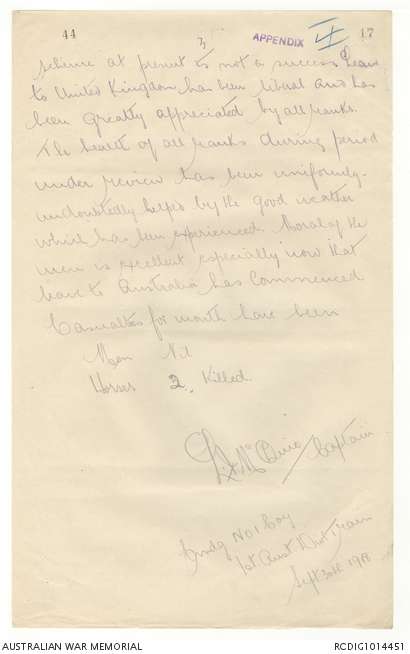 44
3
APPENDIX 4 17
scheme at present is not a success Leave
to United Kingdom has been liberal and has
been greatly appreciated by all ranks.
The health of all ranks during period
under review has been uniformly
undoubtedly helped by the good weather
which has been experienced. Moral of the
men is excellent especially now that
leave to Australia has commenced
Casualties for month have been
Men Nil
Horses 2. Killed.
Captain
Comdg No 1 Coy
1st Aust Div Train
Sept 30th 1918
AUSTRALIAN WAR MEMORIAL
RCDIG1014451